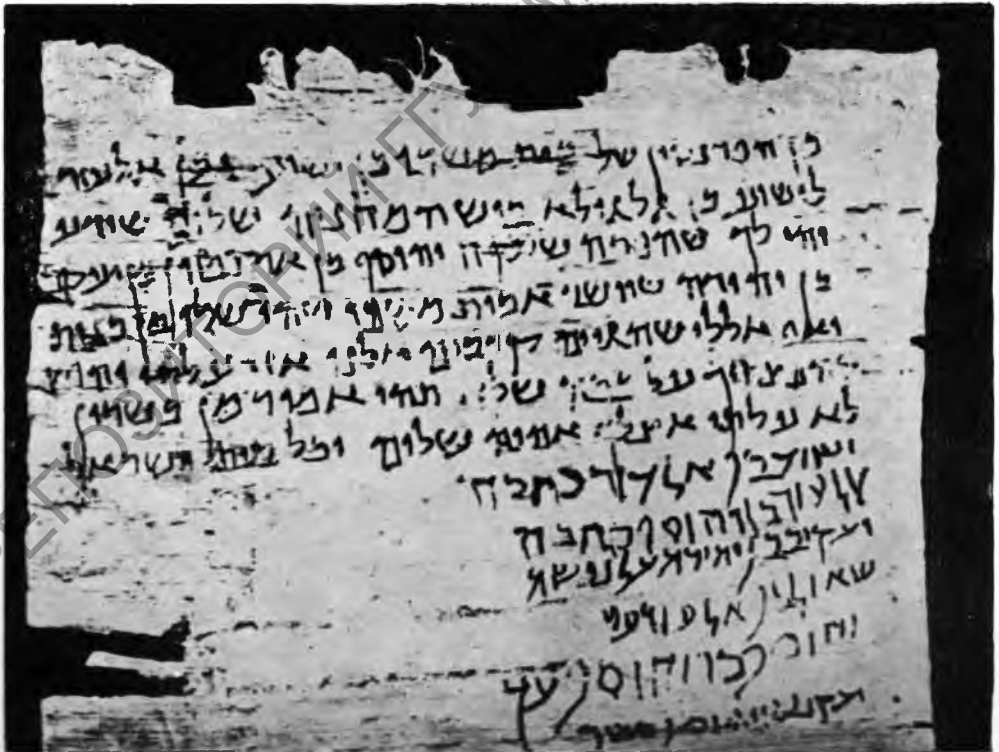 מן הפרנסין של בית משכו מישוע ומן אלעזר
לישוע בן גלגולא ריש המחניה שלום שידע
יהי לך שהפרה שלקח יהוסף בן אריסטון מיעקב
בן יהודה שיושב בית משכו שהי שלו מזבנות
ואללי שהגיים קרבים אלנו אזי עליתי
על שלו תהי אומר מן בסרון
לא עליתי אצלך אהוה שלום וכל בית ישראל
ישוע בן אלעזר כתבה
אלעזר בן יהוסף כתבה
יעקוב בן יהודה לנפשה
שאול בן אלעזר עד
יהוסף בר יהוסף עד
יעקוב בן יהוסף
РЕПОЗИТОРИЙ ГГУ